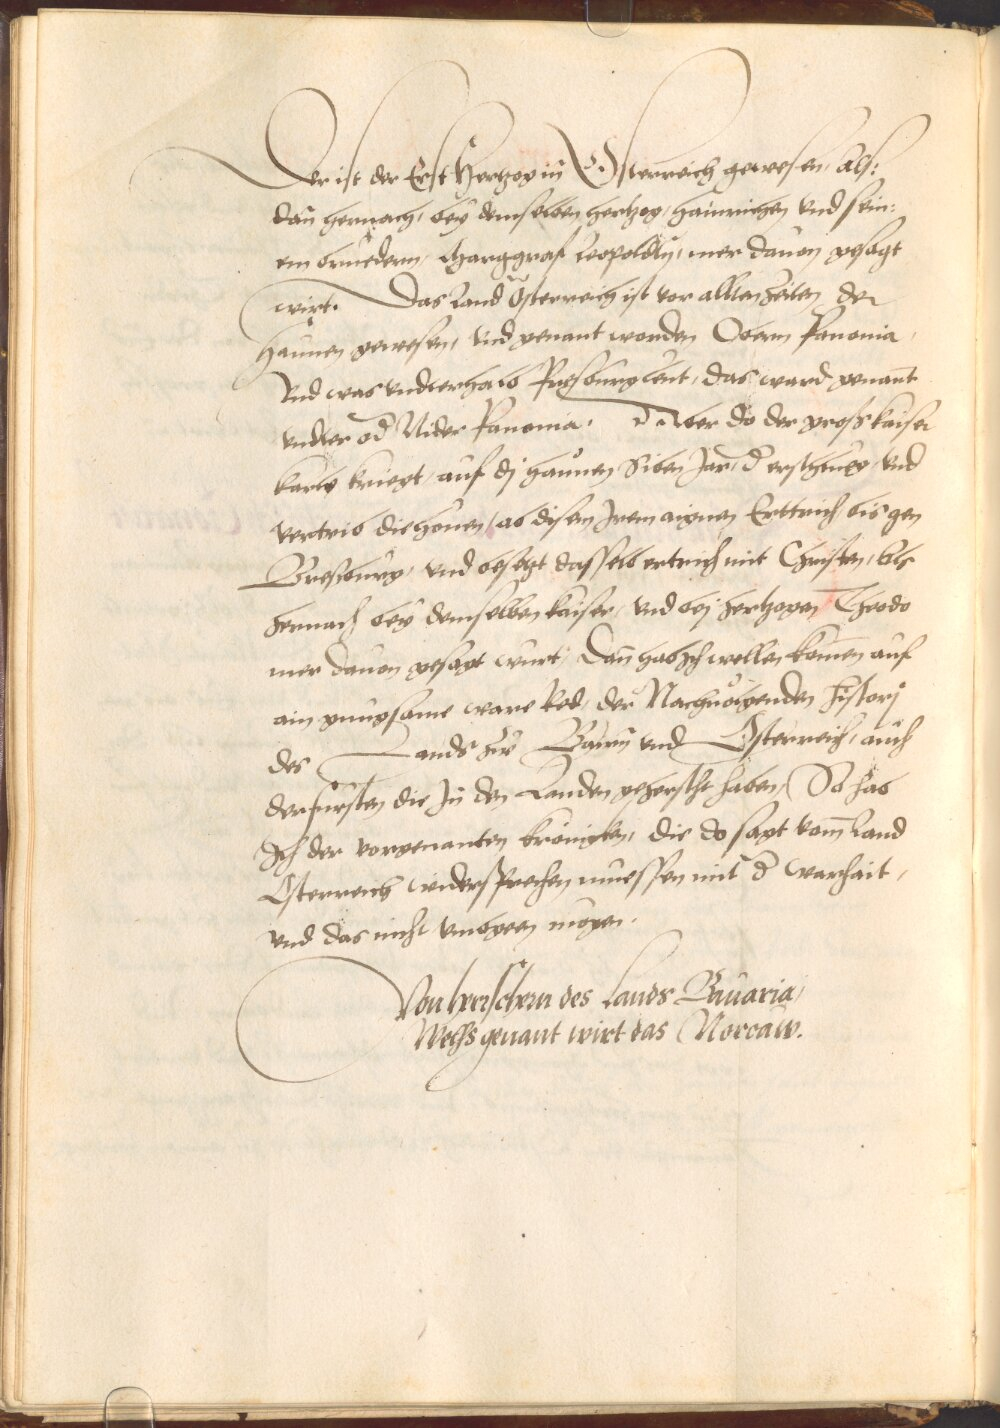 Der ist der Erst Hertzog in Österreich gewesen, Als:
dan hernach, bey demselben hertzog, hainrichen und sein:
em bruedern, Marggraf Leopoldn, mer dauon gesagt
wirt. Das Land Österreich ist vor allten Zeiten der
haunen gewesen, und genant worden Obern Panonia,
Und was underhalb Presburg leut, das ward genant
under od Nider Panonia. Aber do der gross kaiser
karls kriegt, auf dj haunen Siben Jar, d erschlueg, und
vertrib die hunen, ab disen Jrem aignen Erttrich, bis gen
Bresburg, und besetzt dasselb ertrich mit Christen, als
hernach bey demselben kaiser, und bej hertzogen Theodo
mer dauon gesagt wurt, Dan hab Jch wellen komen auf
ain gnugsame ware Red, der Nachuolgenden history
des Lands zw Bairn und Österreich, auch
der fürsten die Jn den Landen geherscht haben, So hab
Jch der vorgenanten kronigken, die do sagt vom Land
Österreich widersprechen muessen mit d warhait,
und das nicht umbgeen mögen.
Von herrschern des Lands Bauaria,
Wechs genant wirt das Norcaw.